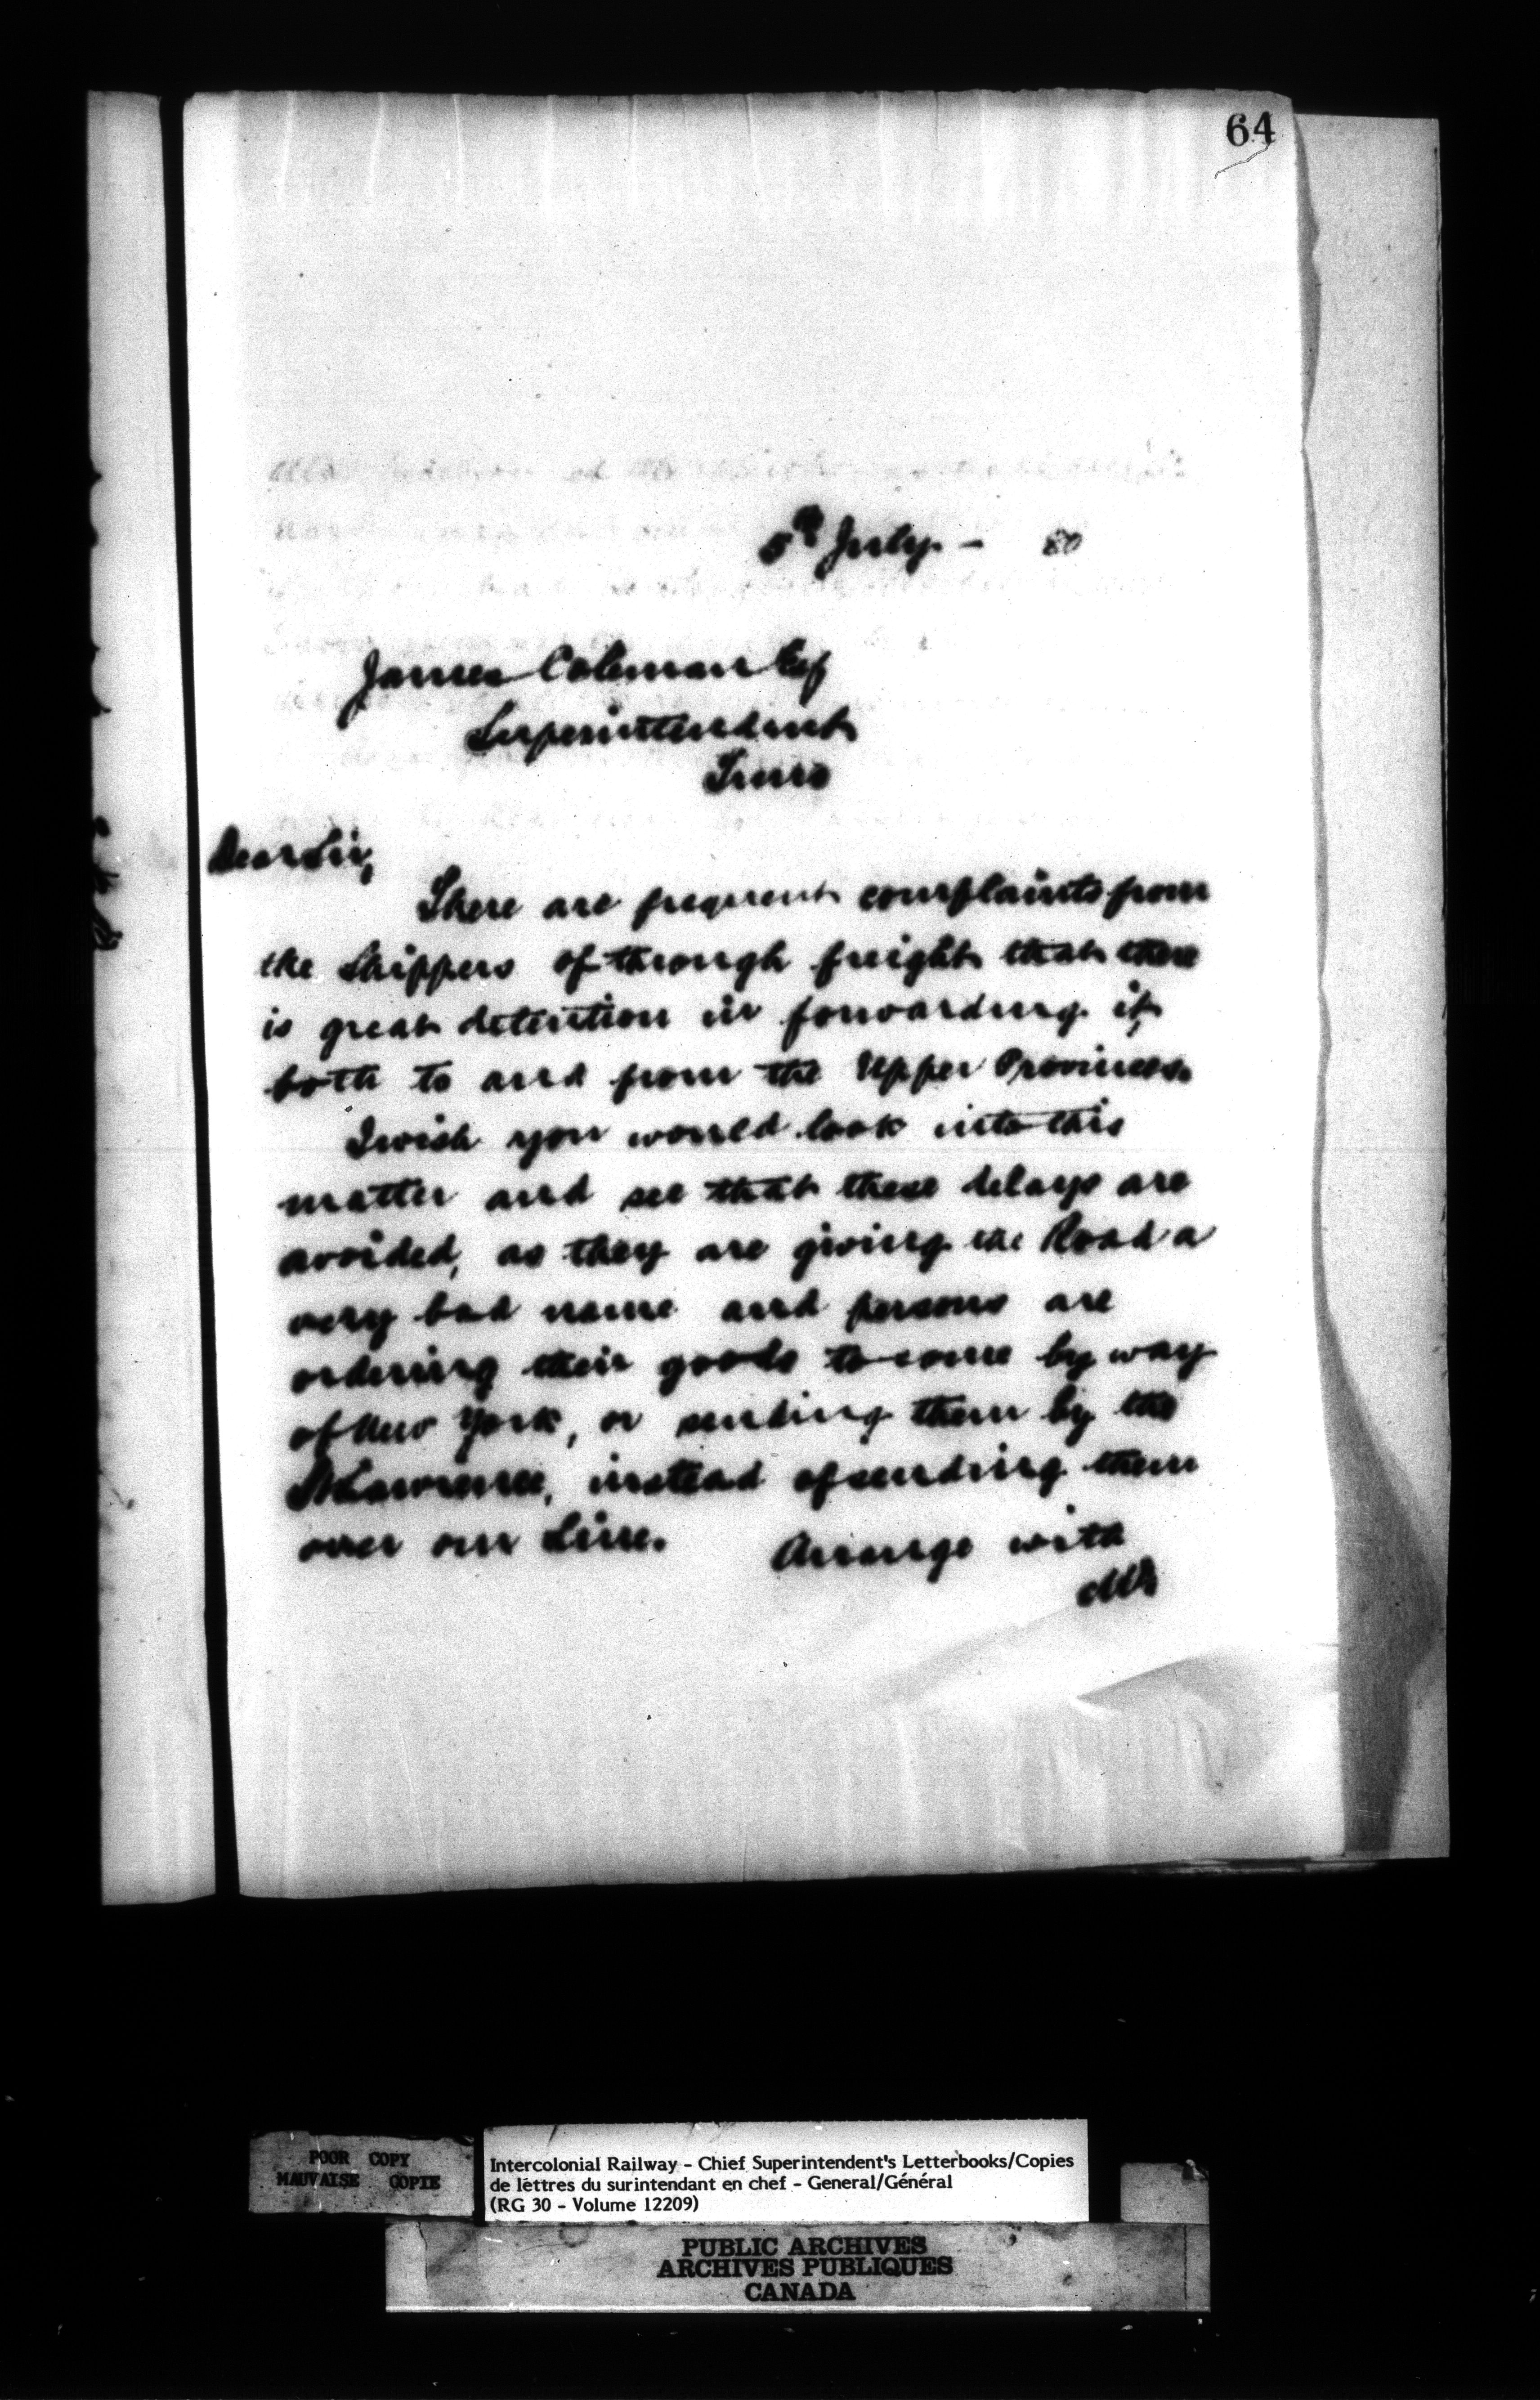 64
5th July - 80
James Coleman Esq
Superintendent
Truro
Dear Sir,
There are frequent complaints from
the Shippers of through freight that there
is great detention in forwarding it
both to and from the Upper Provinces.
I wish you would look into this
matter and see that these delays are
avoided, as they are giving the Road a
very bad name and persons are
ordering their goods to come by way
of New York, or sending them by the
St Lawrence, instead of sending them
over our Line. Arrange with
Mr
POOR COPY
MAUVAISE COPIE
Intercolonial Railway - Chief Superintendent's Letterbooks/Copies
de lettres du surintendant en chef - General/Général
(RG 30 - Volume 12209)
PUBLIC ARCHIVES
ARCHIVES PUBLIQUES
CANADA